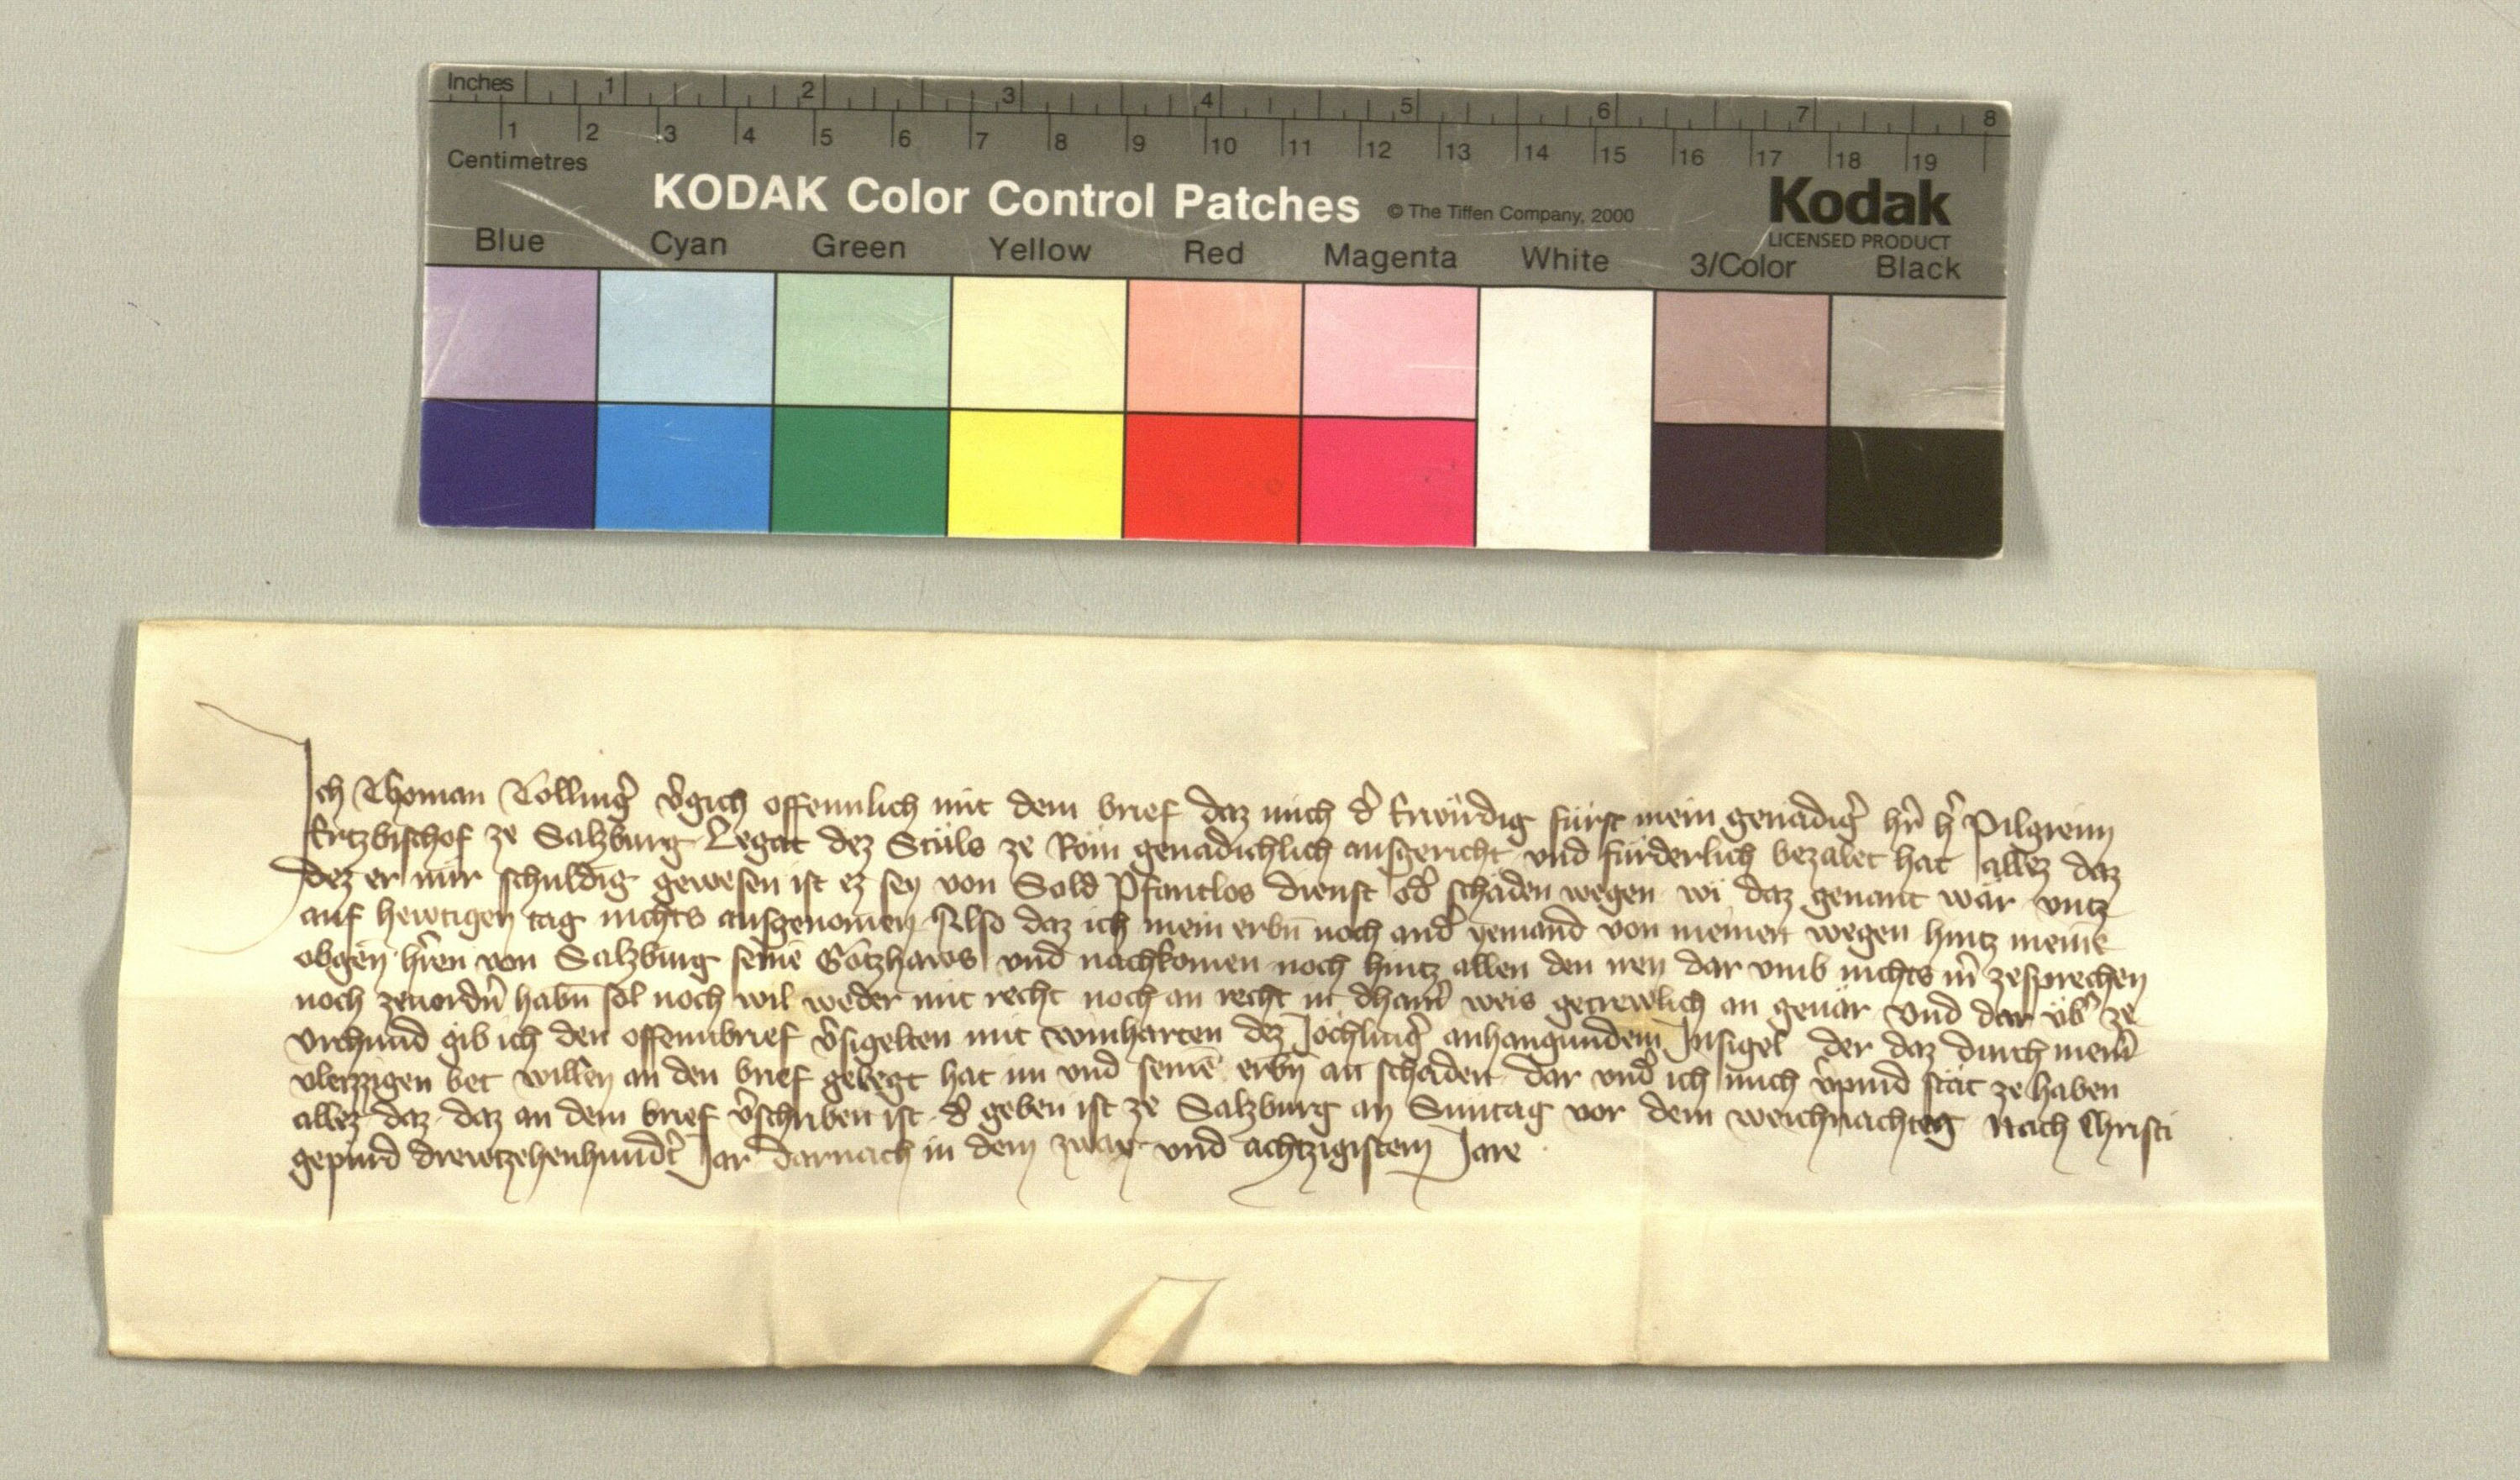 Inches 1 2 3 4 5 6 7 8
1 2 3 4 5 6 7 8 9 10 11 12 13 14 15 16 17 18 19
Centimetres
KODAK Color Control Patches © The Tiffen Company, 2000 Kodak
LICENSED PRODUCT
Blue Cyan Green Yellow Red Magenta White 3/Color Black
Ich Thoman Tollinğ v̆gich offennlich mit dem brief daz mich d̆ Erwirdig fürst mein genädig̃ hr̃ h̃ Pilgreim
Ertzbischof ze Salzburg Legat dez Stůls ze Rom genädichlich ausgericht vnd fürderlich bezalet hat allez daz
dez er mir schuldig gewesen ist ez sey von Sold Pfantlos dienst od̆ schäden wegen wi daz genant wär vntz
auf hewtigen tag nichts ausgenomen Also daz ich mein erbn̄ noch and̆ yemand von meinen wegen hintz meinē
obgen̄ hr̃en von Salzburg seinē Gotzhaws vnd nachkomen noch hintz allen den iren dar vmb nichts m̃ zesprechen
noch zeuordn̄ habn̄ sol noch wil weder mit recht noch an recht in dhain̄ weis getrewlich an geuär Vnd dar vb̆ ze
vrchund gib ich den offennbrief v̆sigelten mit Winharten dez Jöchling̃ anhangundem Insigel der daz durch mein̄
vleizzigen bet willen an den brief gelegt hat im vnd seinē erbn̄ an schäden dar vnd̆ ich mich v̆pind stät ze haben
allez daz daz an dem brief v̆schriben ist d̆ geben ist ze Salzburg an Suntag vor dem weichnachten Nach Christi
gepurd drewtzehenhundt̆ Jar darnach in dem zway vnd achtzigistem Jare